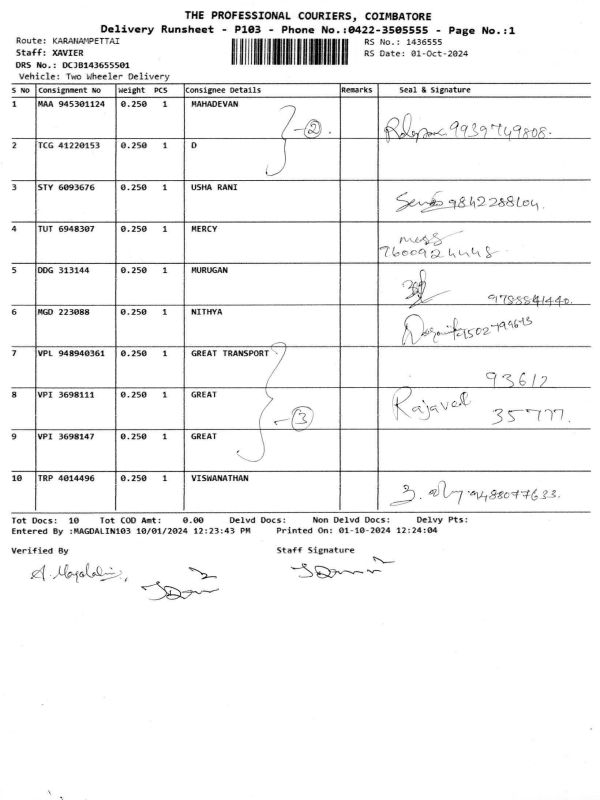 THE PROFESSIONAL COURIERS, COIMBATORE
Delivery Runsheet - P103 - Phone No.:0422-3505555 - Page No.:1
Route: KARANAMPETTAI RS No.: 1436555
Staff: XAVIER RS Date: 01-Oct-2024
DRS No.: DCJB143655501
Vehicle: Two Wheeler Delivery
S No Consignment No Weight PCS Consignee Details Remarks Seal & Signature
1 MAA 945301124 0.250 1 MAHADEVAN
2 9939749808.
2 TCG 41220153 0.250 1 D
3 STY 6093676 0.250 1 USHA RANI
9842288604.
4 TUT 6948307 0.250 1 MERCY
5 DDG 313144 0.250 1 MURUGAN
9788841440.
6 MGD 223088 0.250 1 NITHYA
7 VPL 948940361 0.250 1 GREAT TRANSPORT
93612
8 VPI 3698111 0.250 1 GREAT
3 Rajavel 35777.
9 VPI 3698147 0.250 1 GREAT
10 TRP 4014496 0.250 1 VISWANATHAN
9488077633.
Tot Docs: 10 Tot COD Amt: 0.00 Delvd Docs: Non Delvd Docs: Delvy Pts:
Entered By :MAGDALIN103 10/01/2024 12:23:43 PM Printed On: 01-10-2024 12:24:04
Verified By Staff Signature
A. Magdalin